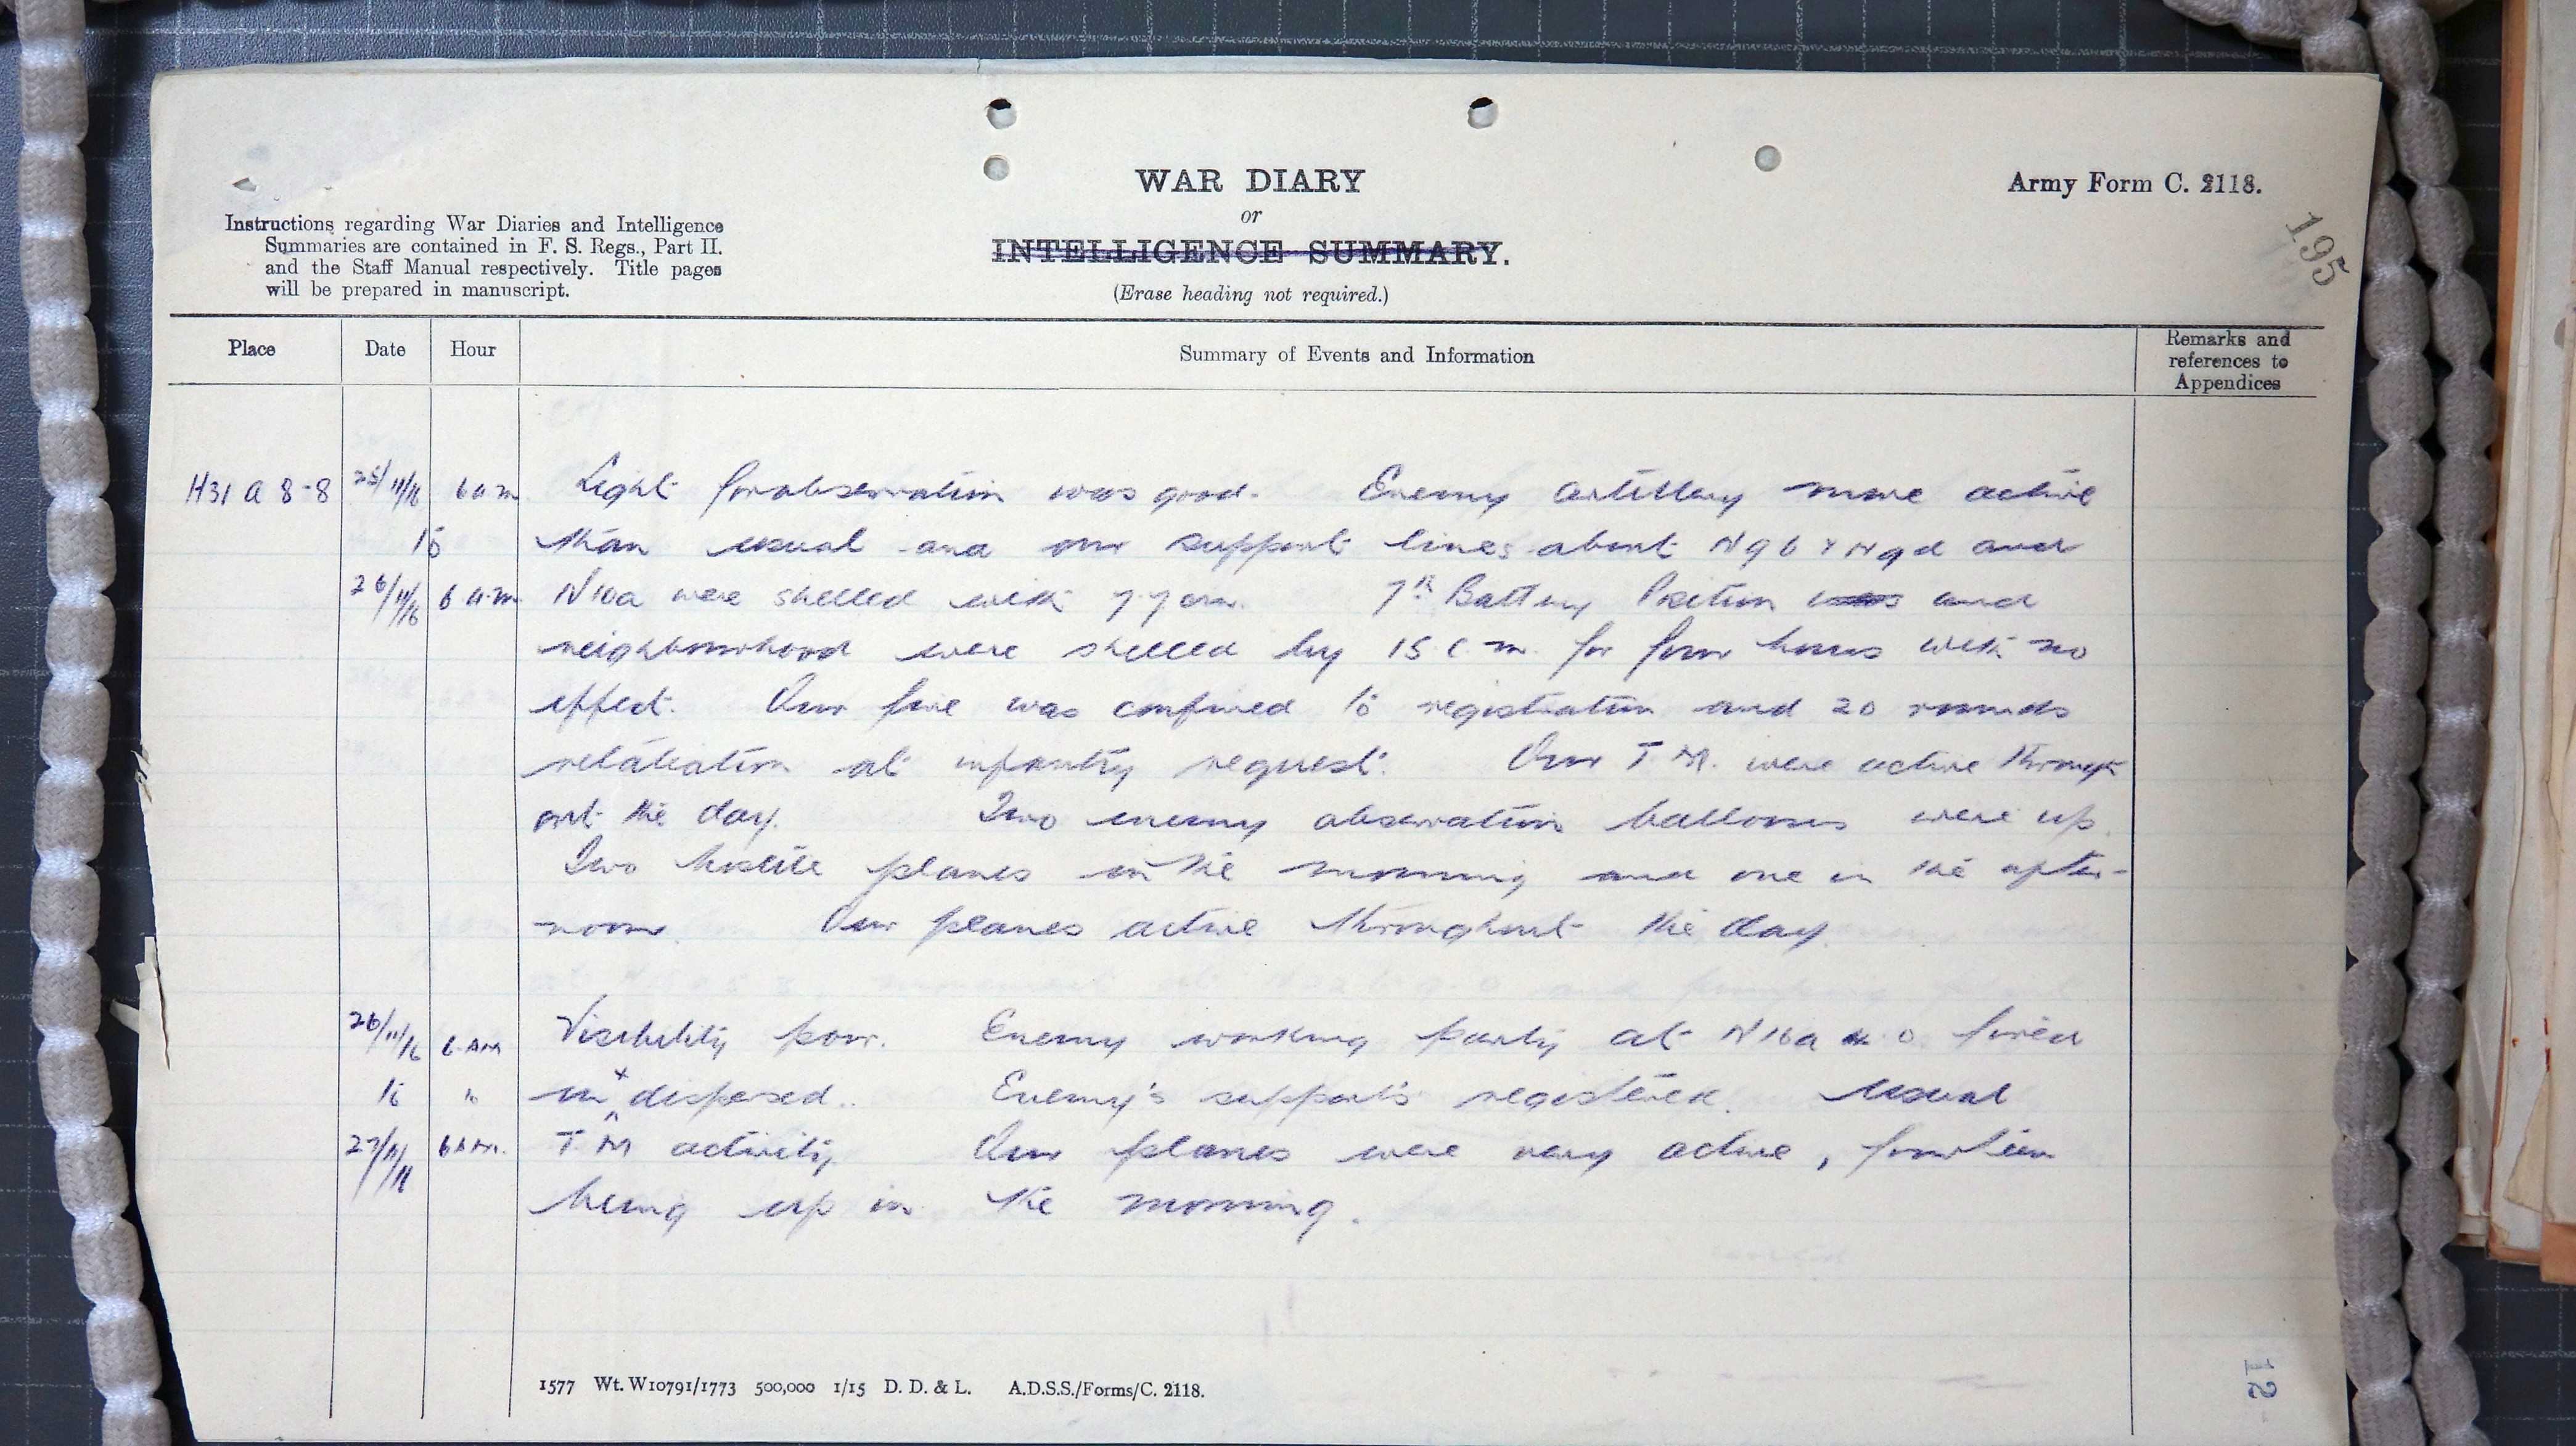 WAR DIARY
or
INTELLIGENCE SUMMARY.
(Erase heading not required.)
Army Form C. 2118.
195
Instructions regarding War Diaries and Intelligence
Summaries are contained in F. S. Regs., Part II.
and the Staff Manual respectively. Title pages
will be prepared in manuscript.
Place Date Hour Summary of Events and Information
Remarks and
references to
Appendices
H31 a 8-8 25/11/16 6 a.m Light for observation was good. Enemy artillery more active
to than usual and our support lines about N9b & N9d and
26/11/16 6 a.m N10a were shelled with 7.7 c.m. 7th Battery Position was and
neighbourhood were shelled by 15 c.m. for four hours with no
effect. Our fire was confined to registration and 20 rounds
retaliation at infantry request. Our T.M. were active through
out the day. Two enemy observation balloons were up.
Two hostile planes in the morning and one in the after-
noon. Our planes active throughout the day.
26/11/16 6 AM Visibility poor. Enemy working party at N16a 0 fired
to on & dispersed. Enemy's supports registered. Usual
27/11/16 6 AM. T.M activity Our planes were very active, fourteen
being up in the morning.
1577 Wt. W10791/1773 500,000 1/15 D. D. & L. A.D.S.S./Forms/C. 2118.
12